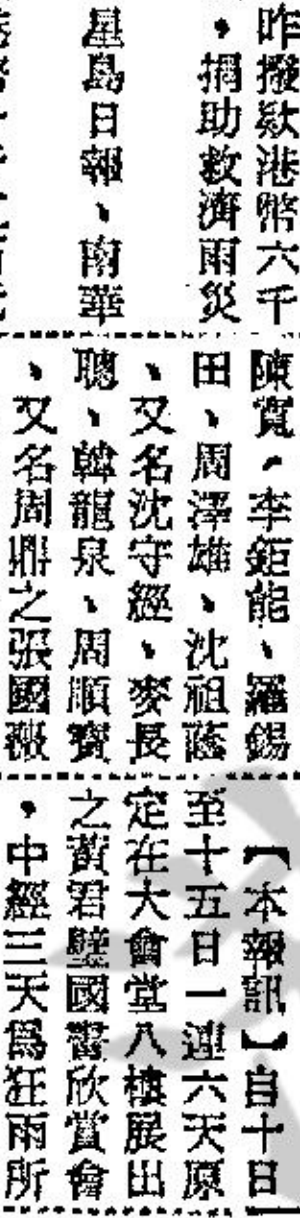 昨撥欵港幣六千
，捐助救濟雨災
星島日報、南華
陳寬、李鉅能、羅錫
田、周澤雄、沈祖蔭
、又名沈守經、麥長
聰、韓龍泉、周順寶
、又名周鼎之張國
【本報訊】自十日
至十五日一連六天原
定在大會堂八樓展出
之黃君璧國書欣賞會
，中經三天爲狂雨所